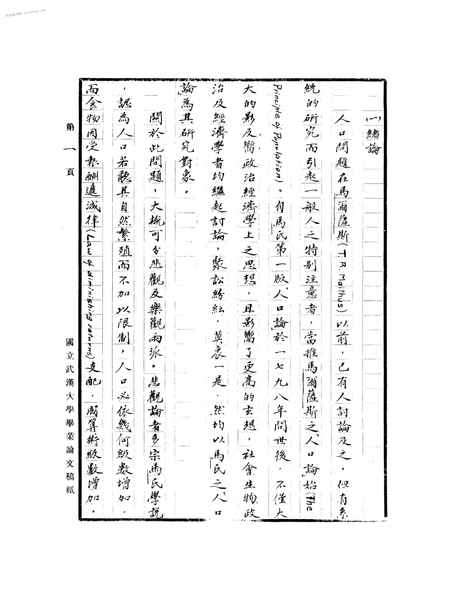 (一)緒論
人口問題在馬爾薩斯(T.R Malthus)以前,已有人討論及之,但有系
統的研究而引起一般人之特別注意者,當推馬爾薩斯之「人口論」始(The
Principle of Population)。自馬氏第一版「人口論」於一七九八年問世後,不僅大
大的影響政治經濟學上之思想,且影響了更高的玄想,社會生物政
治及經濟學者均繼起討論,聚訟紛紜,莫衷一是,然均以馬氏之「人口
論」為其研究對象。
關於此問題,大概可分悲觀及樂觀兩派,悲觀論者多宗馬氏學說
,認為人口若聽其自然繁殖而不加以限制,人口必依幾何級數增加,
而食物因受報酬遞減律(Law of diminishing returns)支配,照算術級數增加,
第一頁
國立武漢大學畢業論文稿紙